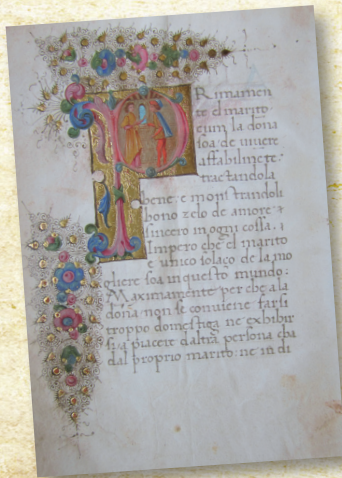 PRimamen
te el marito
cum la dona
soa de uiuere
affabilmēte.
tractandola
bene: e monstrandoli
bono zelo de amore &
sincero in ogni cossa. &
Impero che el marito
e unico solaço de la mo
gliere soa in questo mundo:
Maximamente per che a la
dōna non se conuiene farsi
troppo domestiga ne exhibir
si a piacere daltra persona cha
dal proprio marito: ne in di